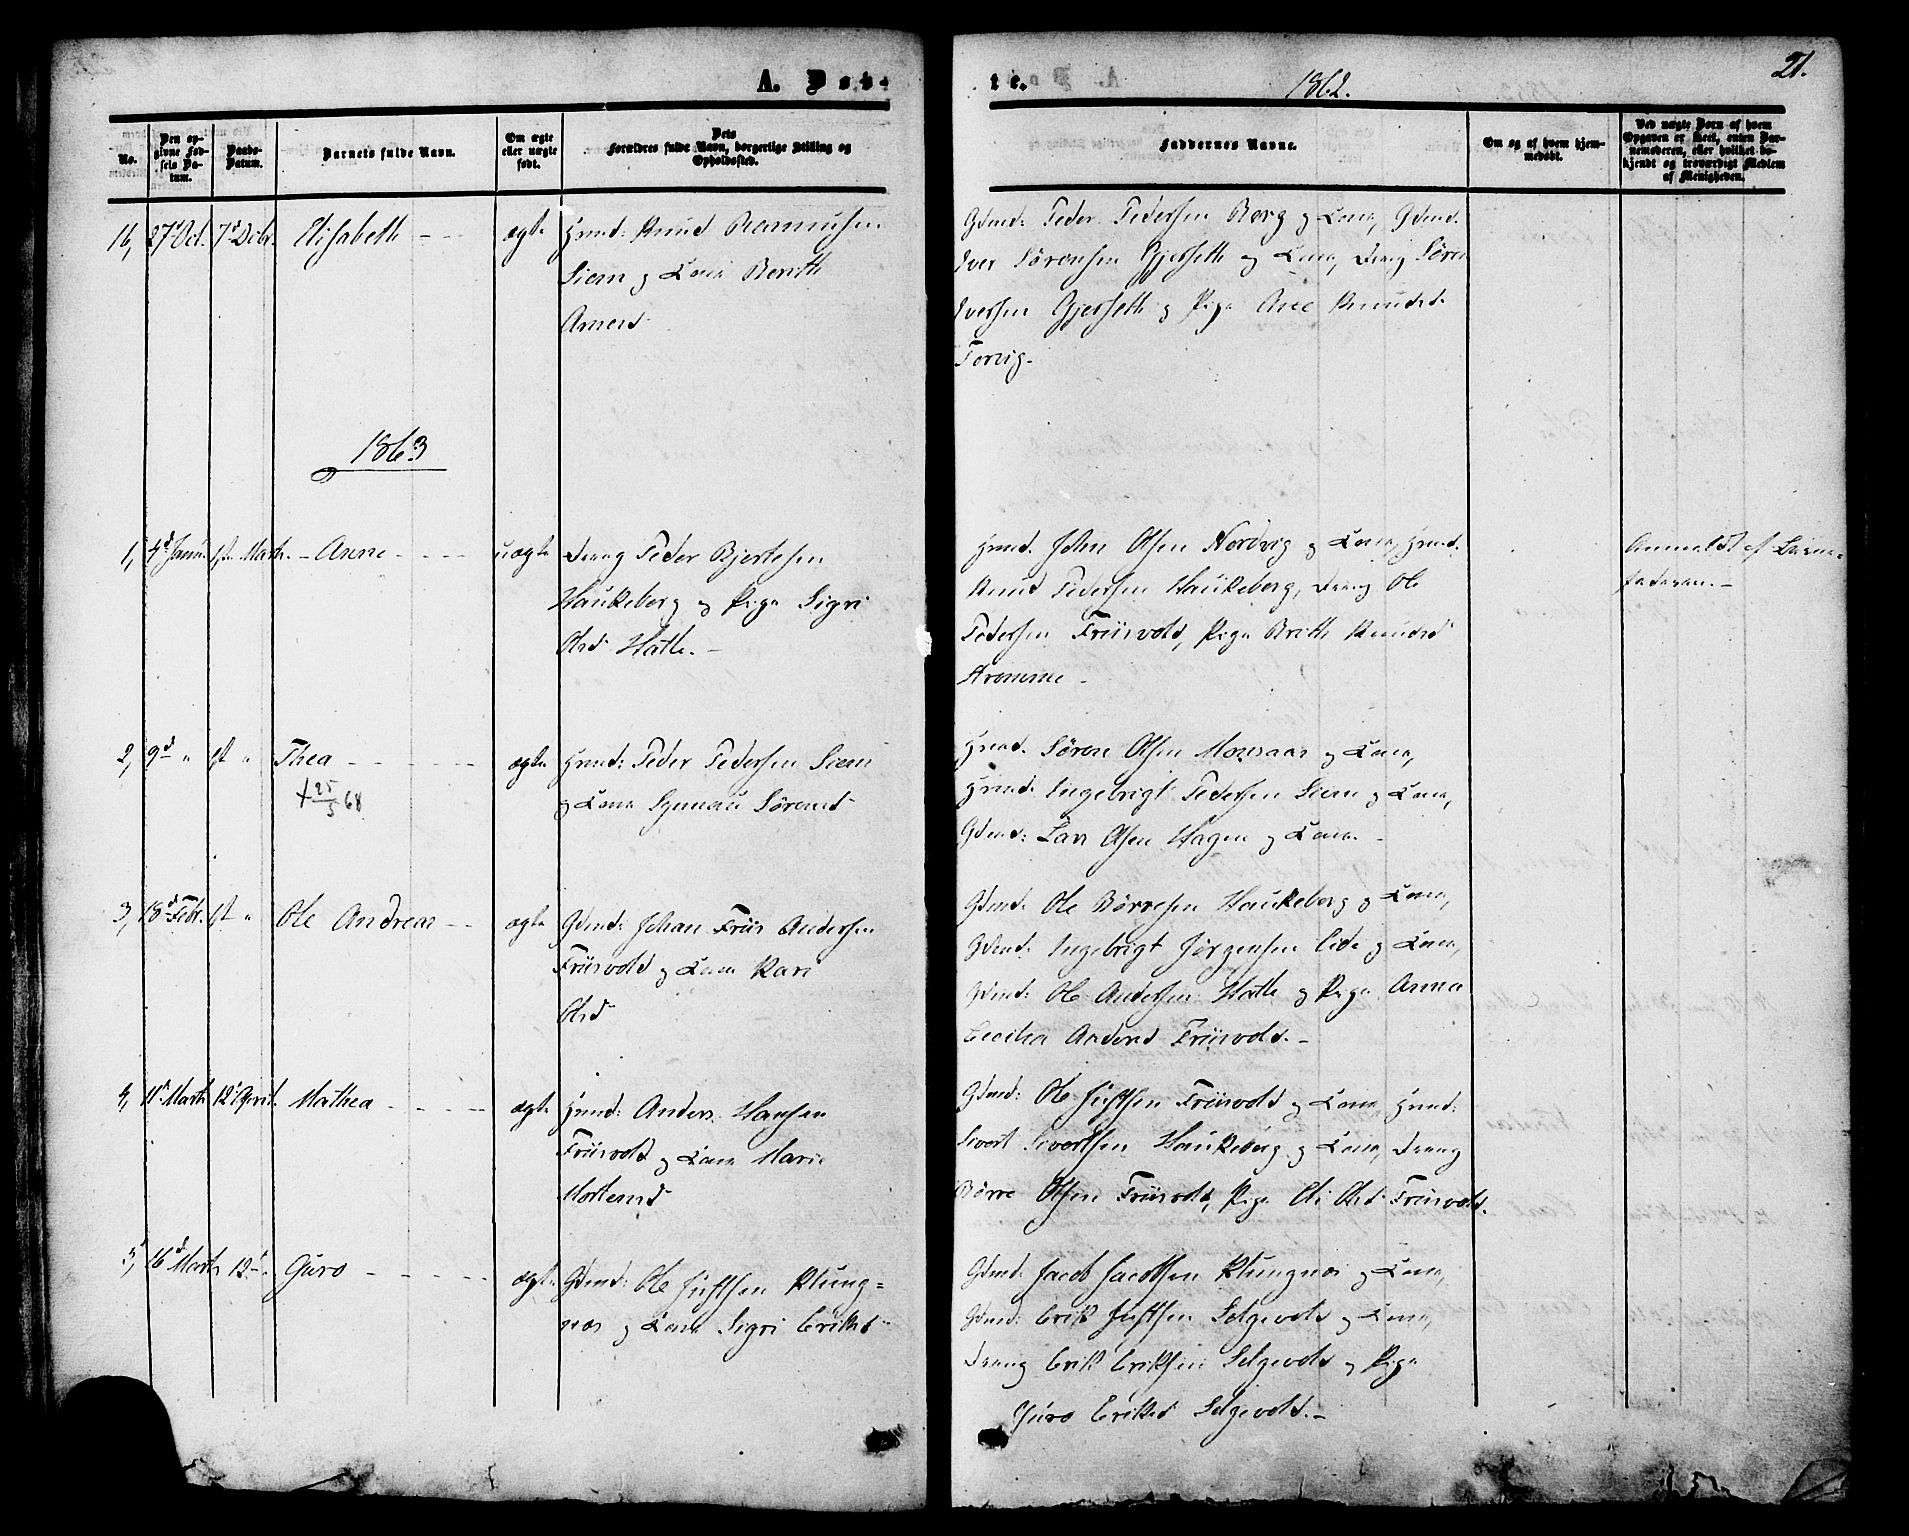 A. Døb-
te.
1862.
21.
No.
Den opgivne Fødsels Datum.
Daabs-Datum.
Barnets fulde Navn.
Om ægte eller uægte født.
Dets Forældres fulde Navn, borgerlige Stilling og Opholdssted.
Faddernes Navne.
Om og af hvem hjemmedøbt.
Ved uægte Børn af hvem Opgaven er skeet, enten Barnemoderen, eller hvilket bekjendt og troværdigt Medlem af Menigheden.
16, 27d Oct. 7d Decbr. Elisabeth ægte Huusmd: Knud Rasmussen
Siem og Kone Berith
Arnesd
Gdmd: Peder Pedersen Berg og Kone, Gdmd.
Iver Sørensen Gjerseth og Kone, Dreng Søren
Iversen Gjerseth og Pige Ane Knudsd
Torvig.
1863
1, 4d Janu. 1st Marts. Anne uægte Dreng Peder Bjertesen
Haukeberg og Pige Sigri
Olsd Hatle.
Hmd. John Olsen Nordvig og Kone, Hmd.
Knud Pedersen Haukeberg, Dreng Ole
Pedersen Friisvold, Pige Brith Knudsd
Strømme
Anmeldt af Barne-
faderen.
2, 9d " 1st " Thea ægte Hmd: Peder Pedersen Siem
+ 25/5 68
og Kone Synnau Sørensd
Hmd. Søren Olsen Monsaas og Kone,
Hmd. Ingebrigt Pedersen Siem og Kone,
Gdmd: Lars Olsen Hagen og Kone.
3, 18d Febr. 1st " Ole Andreas ægte Gdmd: Johan Friis Andersen
Friisvold og Kone Kari
Olsd
Gdmd. Ole Børresen Haukeberg og Kone,
Gdmd. Ingebrigt Jørgensen Eide og Kone,
Gdmd: Ole Andersen Hatle og Pige Anna
Cecilia Andersd Friisvold.
4, 11d Marts 12te April. Mathea ægte Hmd: Anders Hansen
Friisvold og Kone Marie
Mortensd
Gdmd: Ole Justsen Friisvold og Kone, Hmd:
Sivert Sivertsen Haukeberg og Kone, Dreng
Børre Olsen Friisvold, Pige Eli Olsd Friisvold.
5, 16d Marts 12- Guro ægte Gdmd: Ole Justsen Klung-
nes og Kone Sigri Eriksd
Gdmd: Jacob Jacobsen Klungnes og Kone,
Gdmd: Erik Justsen Solgevold og Kone,
Dreng Erik Eriksen Solgevold og Pige
Guro Eriksd Solgevold.